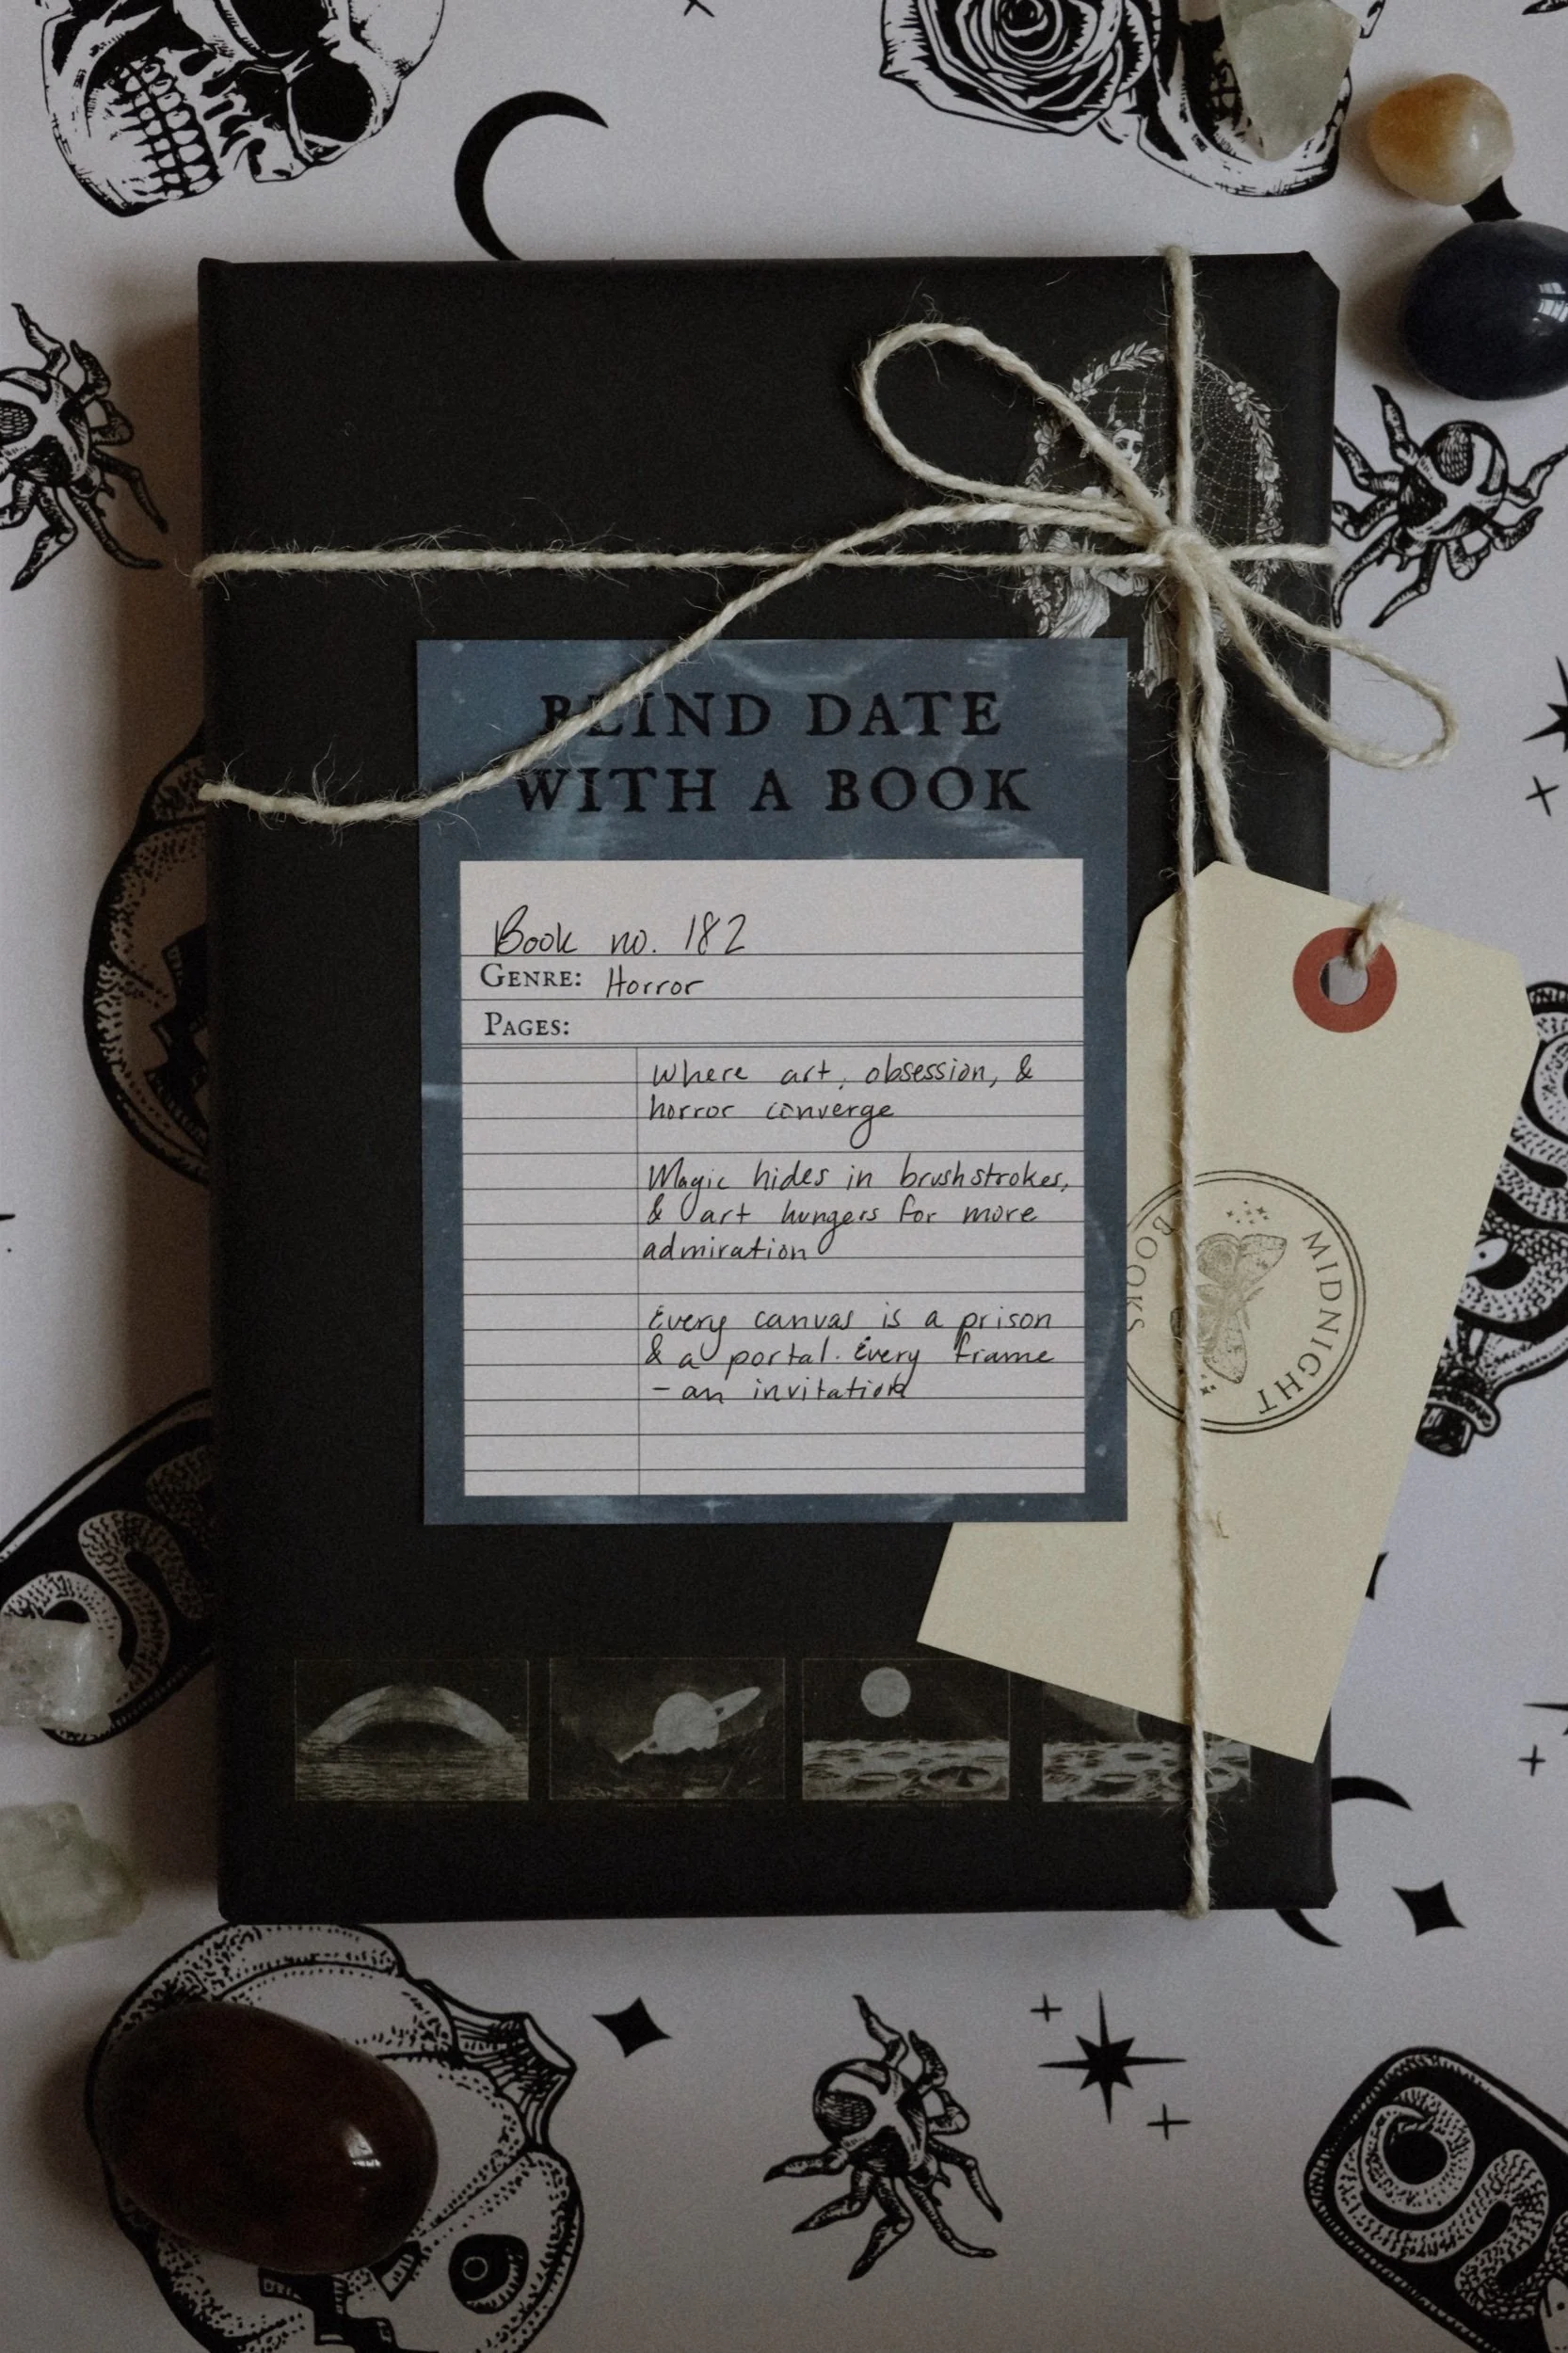 BLIND DATE
WITH A BOOK
Book no. 182
GENRE: Horror
PAGES:
Where art, obsession, &
horror converge
Magic hides in brushstrokes,
& art hungers for more
admiration
Every canvas is a prison
& a portal. Every frame
- an invitation
MIDNIGHT
BOOKS